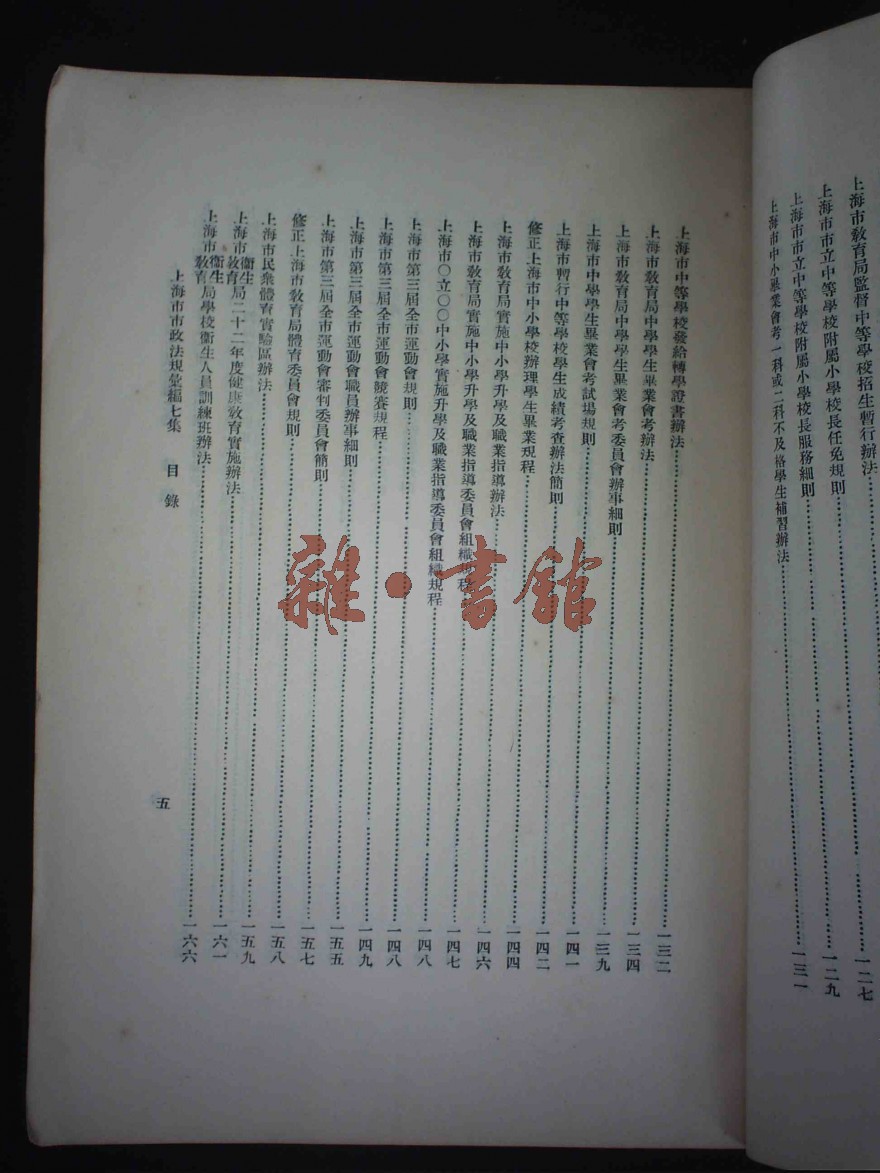 上海市教育局監督中等學校招生暫行辦法
上海市市立中等學校附屬小學校長任免規則……一二七
上海市市立中等學校附屬小學校長服務細則……一二九
上海市中小畢業會考一科或二科不及格學生補習辦法……一三一
上海市中等學校發給轉學證書辦法……一三二
上海市教育局中學學生畢業會考辦法……一三四
上海市教育局中學學生畢業會考委員會辦事細則……一三九
上海市中學學生畢業會考試場規則……一四一
上海市暫行中等學校學生成績考查辦法簡則……一四二
修正上海市中小學校辦理學生畢業規程……一四四
上海市教育局實施中小學升學及職業指導辦法……一四六
上海市教育局實施中小學升學及職業指導委員會組織規程……一四七
上海市〇立〇〇中小學實施升學及職業指導委員會組織規程……一四八
上海市第三屆全市運動會規則……一四八
上海市第三屆全市運動會競賽規程……一四九
上海市第三屆全市運動會職員辦事細則……一五五
上海市第三屆全市運動會審判委員會簡則……一五七
修正上海市教育局體育委員會規則……一五八
上海市民衆體育實驗區辦法……一五九
上海市衞生教育局二十二年度健康教育實施辦法……一六一
上海市衞生教育局學校衞生人員訓練班辦法……一六六
上海市市政法規彙編七集 目錄
五
雜·書館